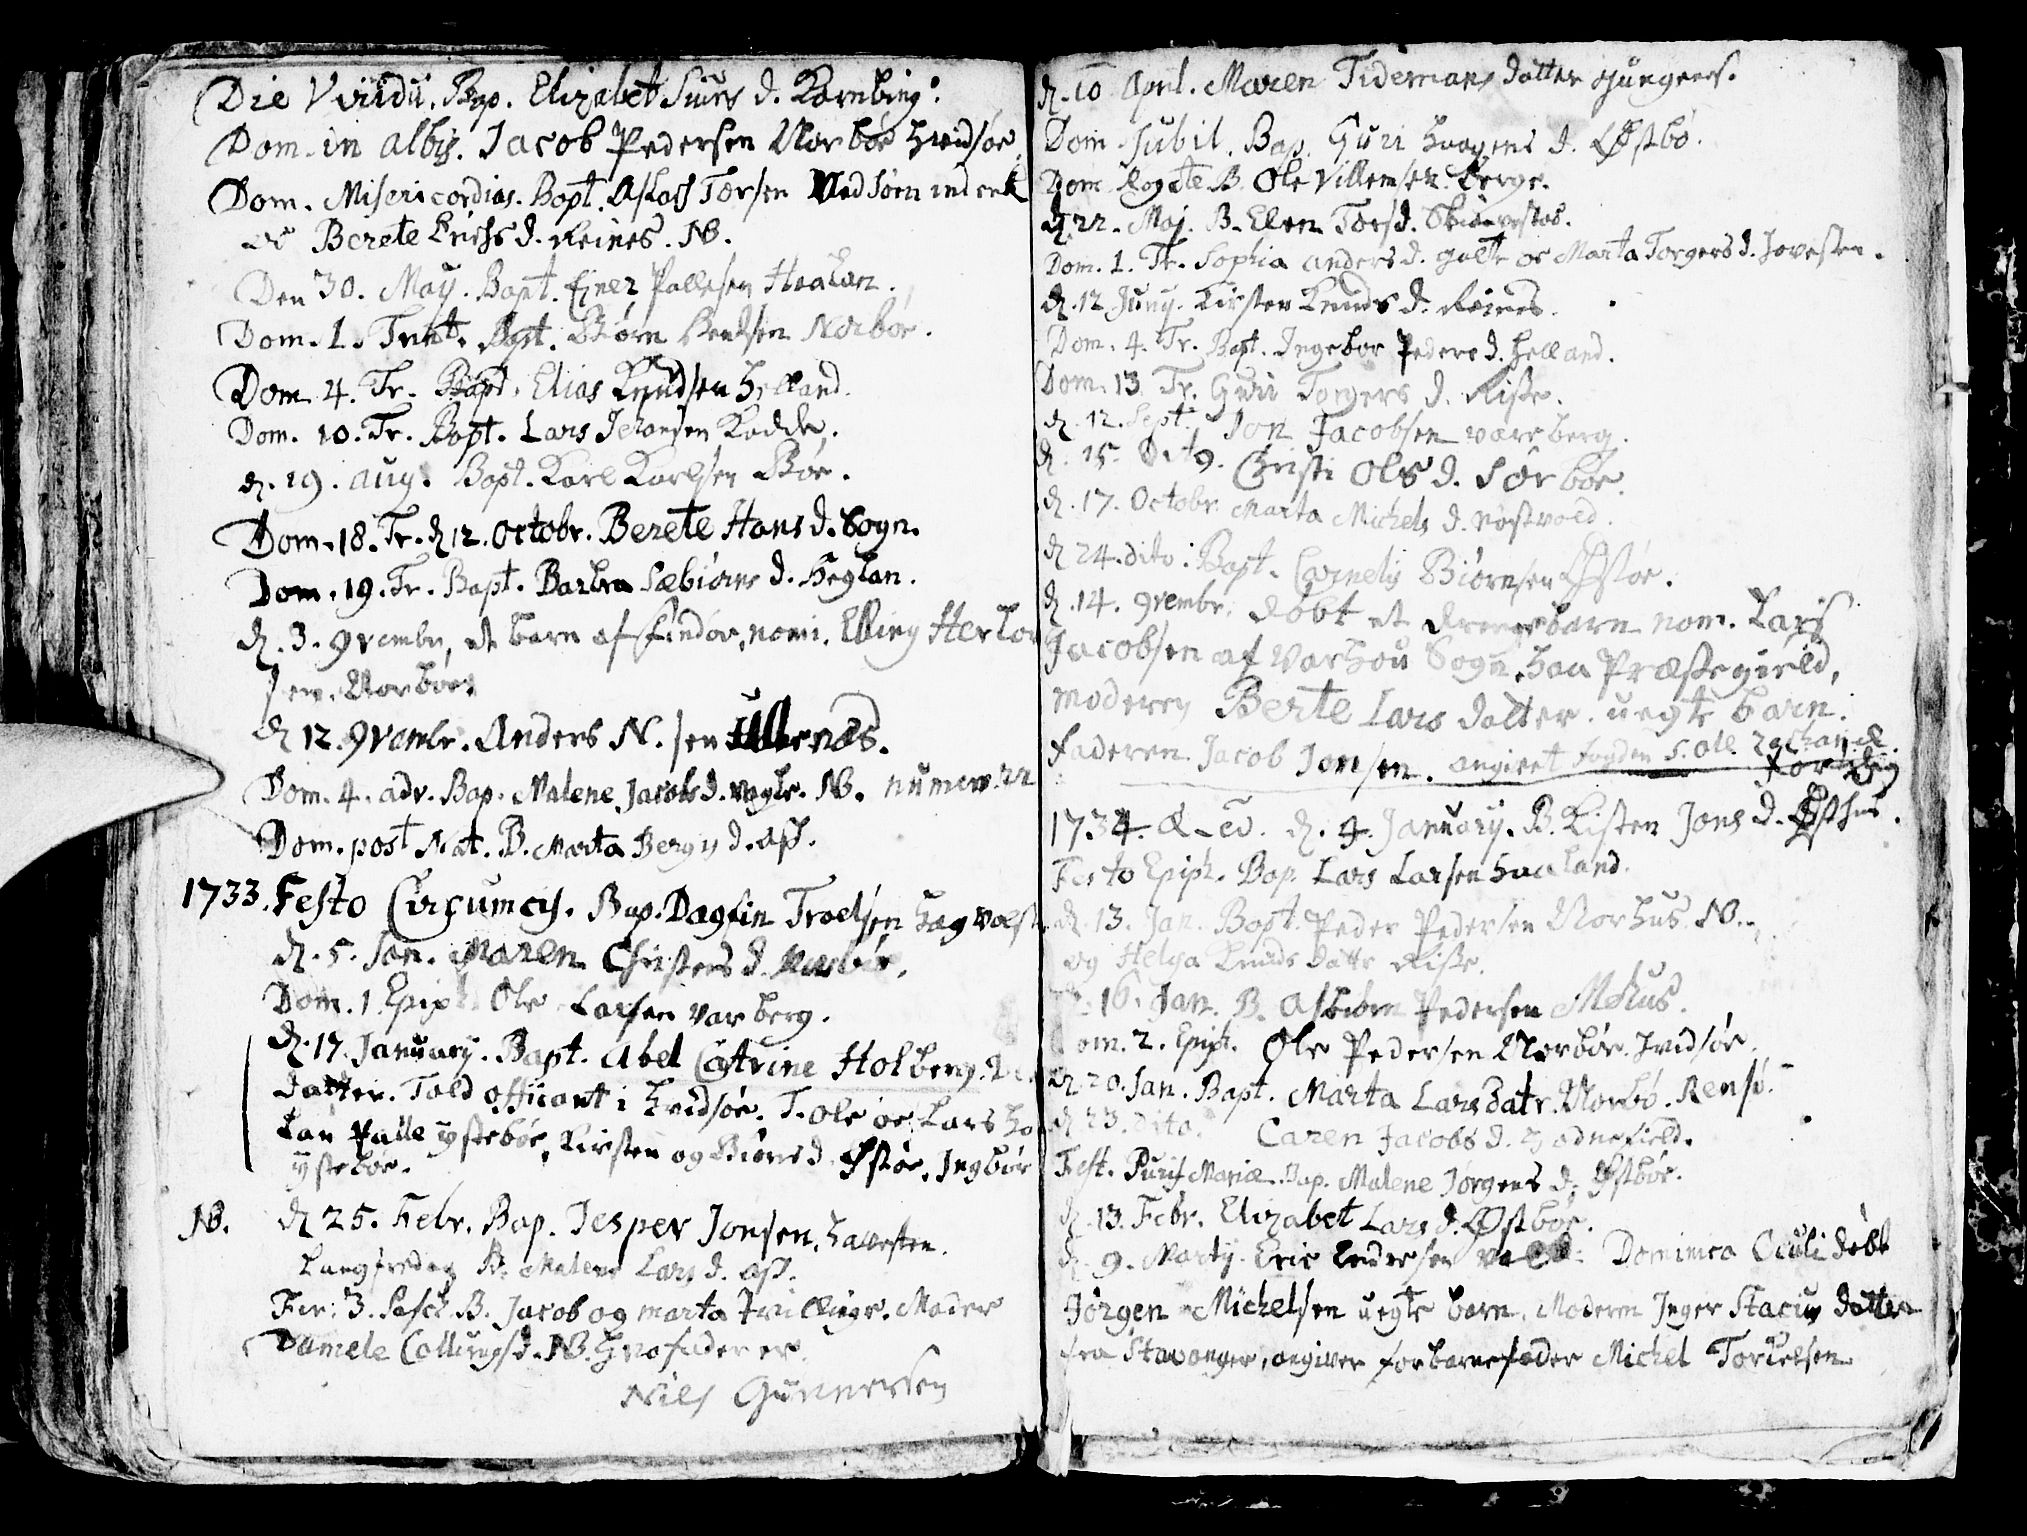 Die Viridii. Bap. Elizabet Siurs d. Kornbing.
Dom. in albis. Jacob Pedersen Norbøe hvidsøe
Dom. Misericordias. Bapt. Aslach Torsen Vedsøen
oc Berete Erichs d. Reines. NB.
Den 30. Maij. Bapt. Einer Pallesen Haaland.
Dom. 1. Trinit. Bapt. Biørn Norbøe.
Dom. 4. Tr. Bapt. Elias Knudsen Helland.
Dom. 10. Tr. Bapt. Lars Johansen Kodde.
d. 19. aug. Bapt. Karl Karlsen Bøe.
Dom. 18. Tr. d 12. Octobr. Berete Hans d. Sogn.
Dom. 19. Tr. Bapt. Barbra Sæbiørns d. Hegland.
d. 3. 9vembr. et barn af findøe, nomi. Elling Herlou
sen. Norbøe.
d 12. 9vembr. Anders N. sen Ullenæs.
Dom. 4. adv. Bap. Malene Jacobs d. Vogle. NB. numero 22
Dom. post Nat. B. Marta Berge d. ass.
1733. Festo Circumcis. Bap. Dagfin Troelsen hagvols
d. 5. Jan. Maren Christens d. Norbøe.
Dom. 1. Epiph. Ole Larsen Varberg.
d. 17. January. Bapt. Abel Catrine Holberg.
datter. Told officant i hvidsøe. T. Ole oc Lars
Palle ÿstebøe, Kirsten og Biørns d. Østøe. Ingbør
ÿstebøe.
NB. d 25. Febr. Bap. Jesper Jonsen. havesten.
Langfredag B. Malene Lars d. ass.
Fer: 3. Pasch. B. Jacob og Marta tvillinge. Moder
Damele Collungs d. NB. faderer
Niels Gunnersen
d. 10 April. Maren Tidemans datter giungers.
Dom. Jubil. Bap. Guri haagens d. Østbø.
Dom. Rogate B. Ole Villemsen. berge.
d. 22. Maj. B. Elen Tors d.
Dom. 1. Tr. Sophia anders d. galte oc Marta Torgers d. hovesten.
d. 12 Junij. Kirsten Knuds d. Reines.
Dom. 4. Tr. Bapt. Ingebor Peders d. helland.
Dom. 13 Tr. Guri Torgers d. Riske.
d. 12. Sept. Jon Jacobsen Varberg.
d. 15. Dito. Christi Ols d. Sørbøe.
d. 17. Octobr. Marta Michels d. nøstvold.
d 24. dito. Bapt. Cornelis Biørnsen Østøe.
d. 14. 9vembr. døbt et drengebarn nom. Lars
Jacobsen af Varhou Sogn. haa Præstegield,
moderen Berte Lars datter. uegte barn.
faderen Jacob Jonsen. angivet fogden S. Ole Zachariæ.
1734. d. 4. January. B. Kisten Jons d. Østhus.
Festo Epiph. Bap. Lars Larsen haaland.
d. 13. Jan. Bapt. Peder Pedersen Norhus. NB.
og Helga Knuds dattr Riske.
16. Jan. B. Asbiørn Pedersen Mehus.
Dom. 2. Epiph. Ole Pedersen Norbøe hvidsøe.
d. 20. Jan. Bapt. Marta Larsdatr. Norbø. Rensø.
d 23. dito. Caren Jacobs d. hodnefield.
Fest. Purif. Mariæ. Bap. Malene Jørgens d. Østbøe.
d. 13. Febr. Elizabet Lars d. Østbøe.
d. 9. Martij. Eric Endresen Dominica Oculi døbt
Jørgen Michelsen uegte barn. Moderen Inger Stacius datter
fra Stavanger, angiver for barnefader Michel Torkelsen